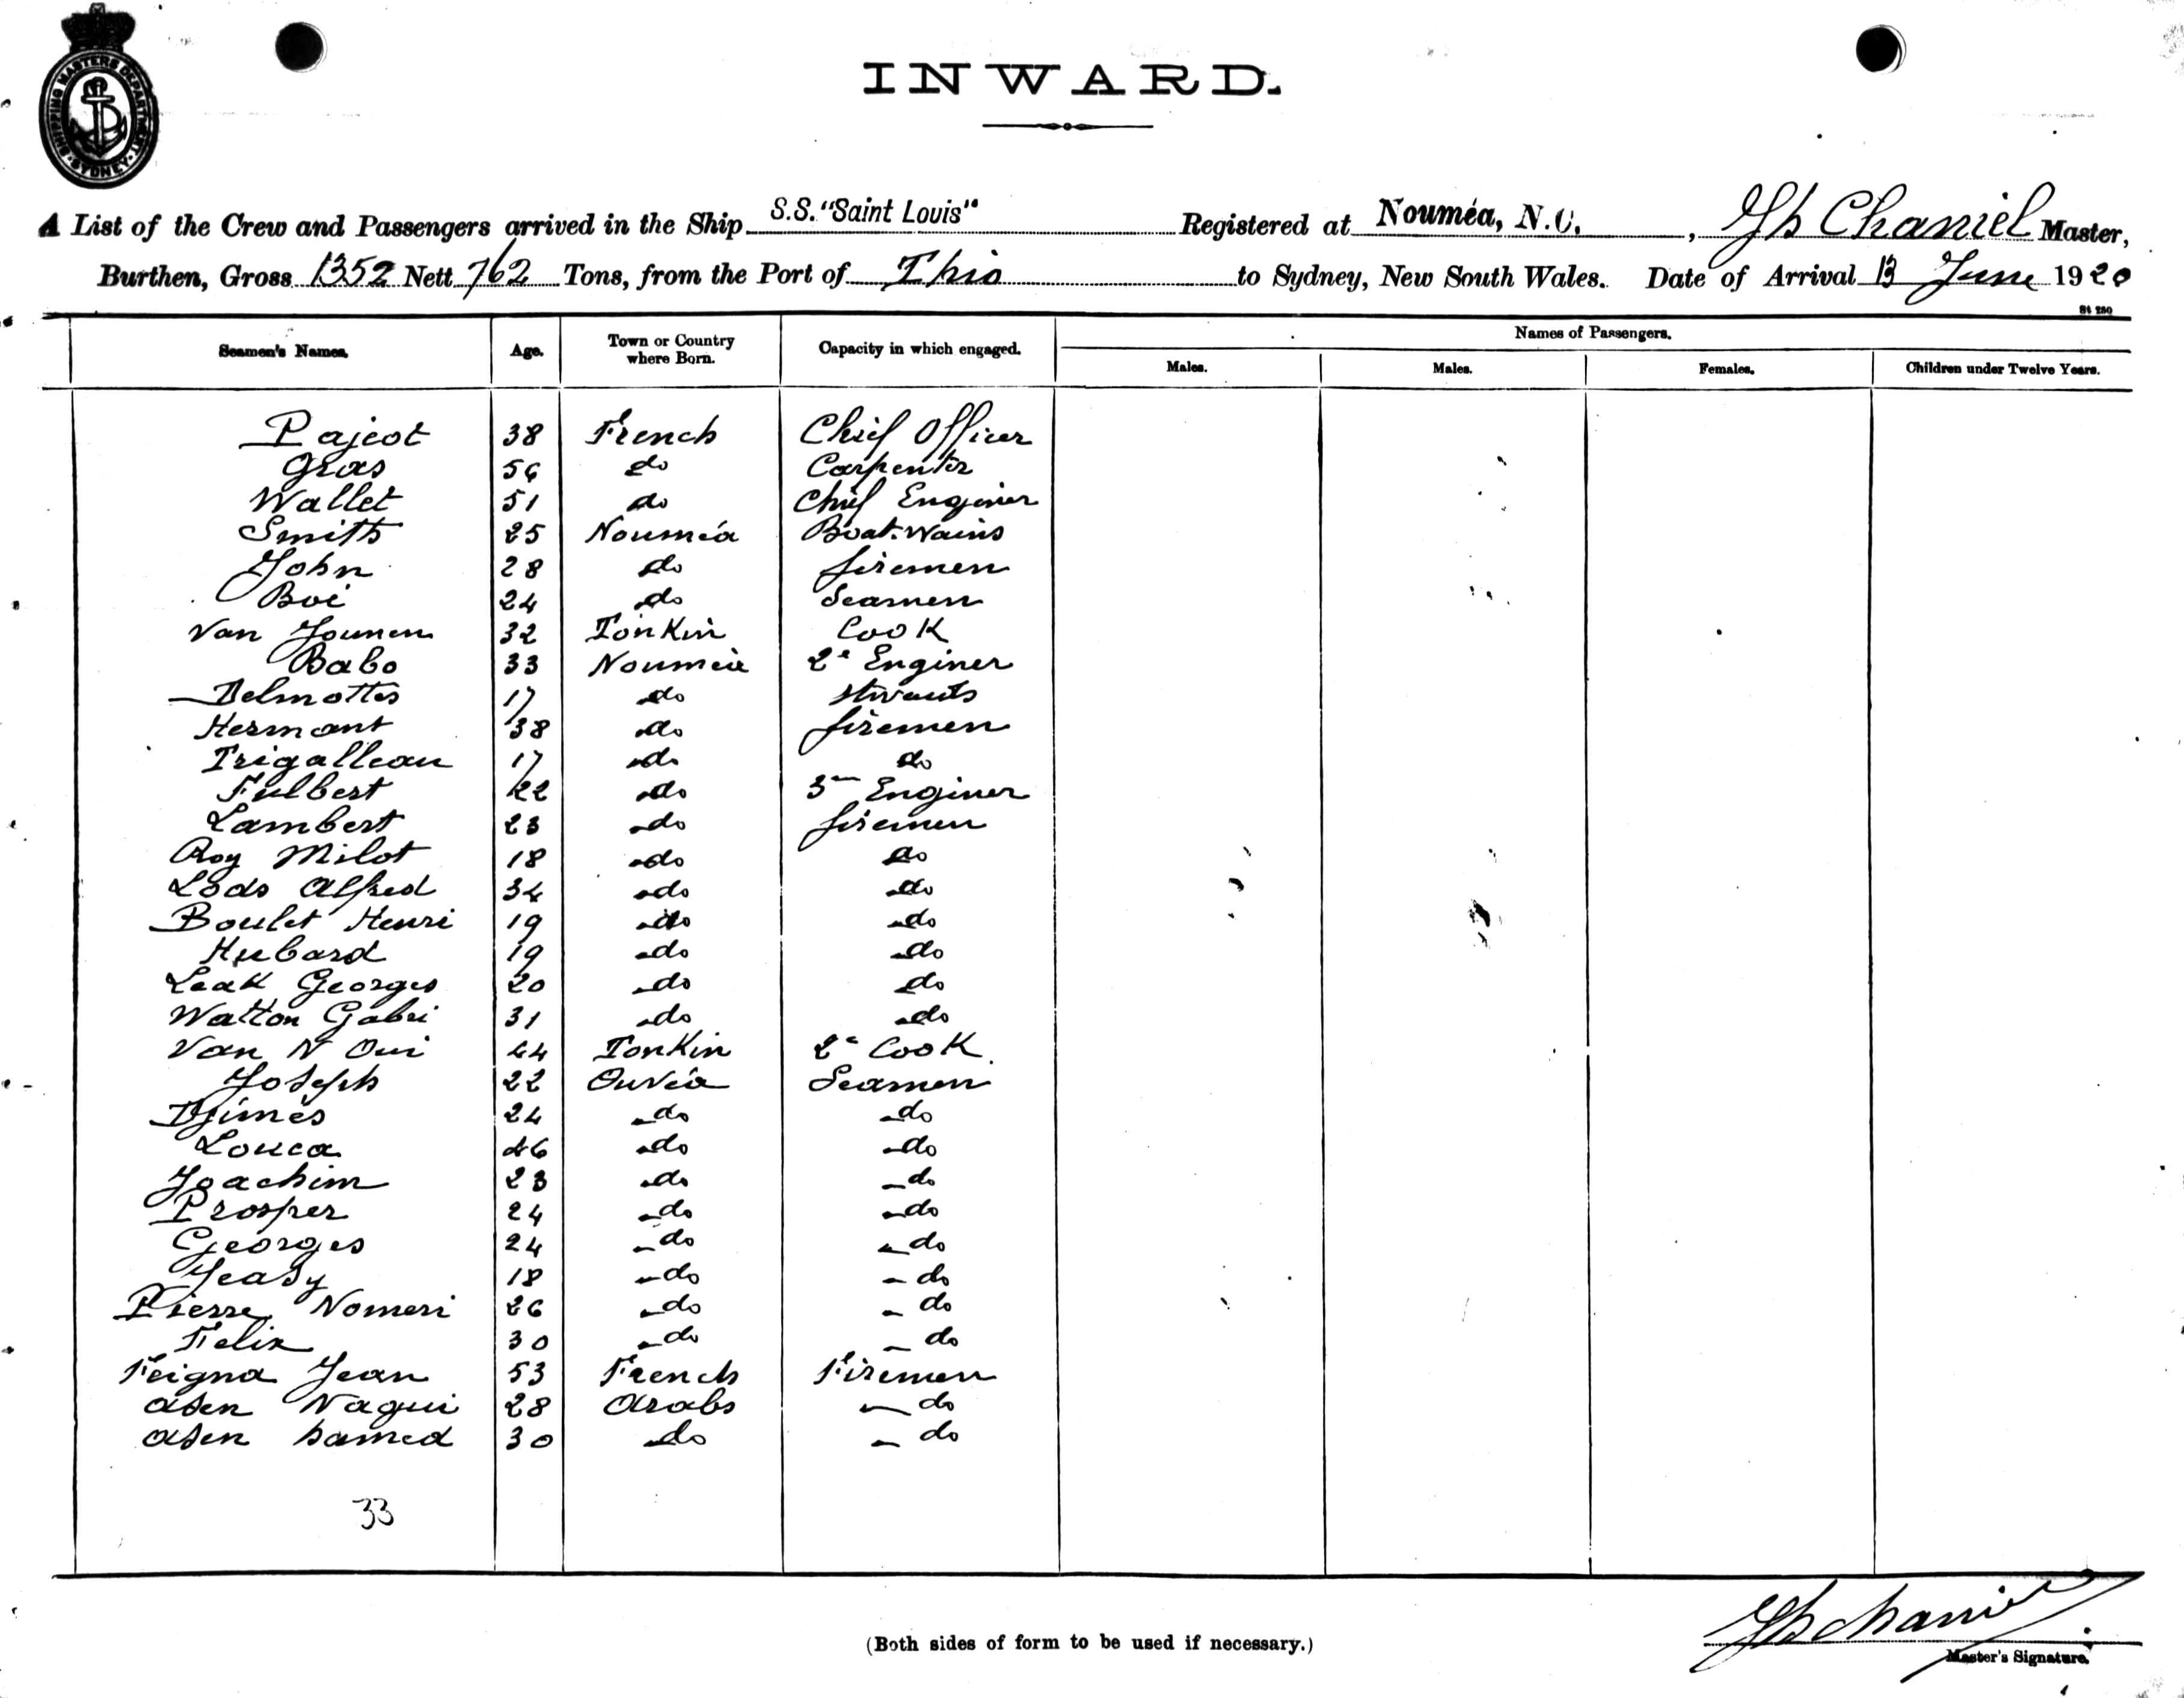 SHIPPING MASTERS DEPARTMENT
SYDNEY
INWARD.
A List of the Crew and Passengers arrived in the Ship S.S. "Saint Louis" Registered at Nouméa, N.C., Chaniel Master,
Burthen, Gross 1352 Nett 762 Tons, from the Port of Thio to Sydney, New South Wales. Date of Arrival 13 June 1920
St 280
Seamen's Names. Age. Town or Country where Born. Capacity in which engaged. Names of Passengers.
Males. Males. Females. Children under Twelve Years.
Pajeot 38 French Chief Officer
Gras 56 do Carpenter
Wallet 51 do Chief Enginer
Smith 25 Nouméa Boat-Wains
John 28 do firemen
Boi 24 do Seamen
Van Younen 32 TonKin Cook
Babo 33 Nouméa 2e Enginer
Delmottes 17 do
Hermant 38 do firemen
Trigalleau 17 do do
Fulbert 22 do 3me Enginer
Lambert 23 do firemen
Roy Milot 18 do do
Lods Alfred 34 do do
Boulet Henri 19 do do
Hubard 19 do do
Leak Georges 20 do do
Watton Gabri 31 do do
Van N Oui 44 TonKin 2e Cook
Joseph 22 Ouvéa Seamen
Djimès 24 do do
Louca 46 do do
Joachim 23 do do
Prosper 24 do do
Georges 24 do do
Yeasy 18 do do
Pierre Nomeri 26 do do
Felix 30 do do
Feigna Jean 53 French Firemen
Asen Nagui 28 Arabs do
Asen hamed 30 do do
33
(Both sides of form to be used if necessary.)
Chaniel
Master's Signature.